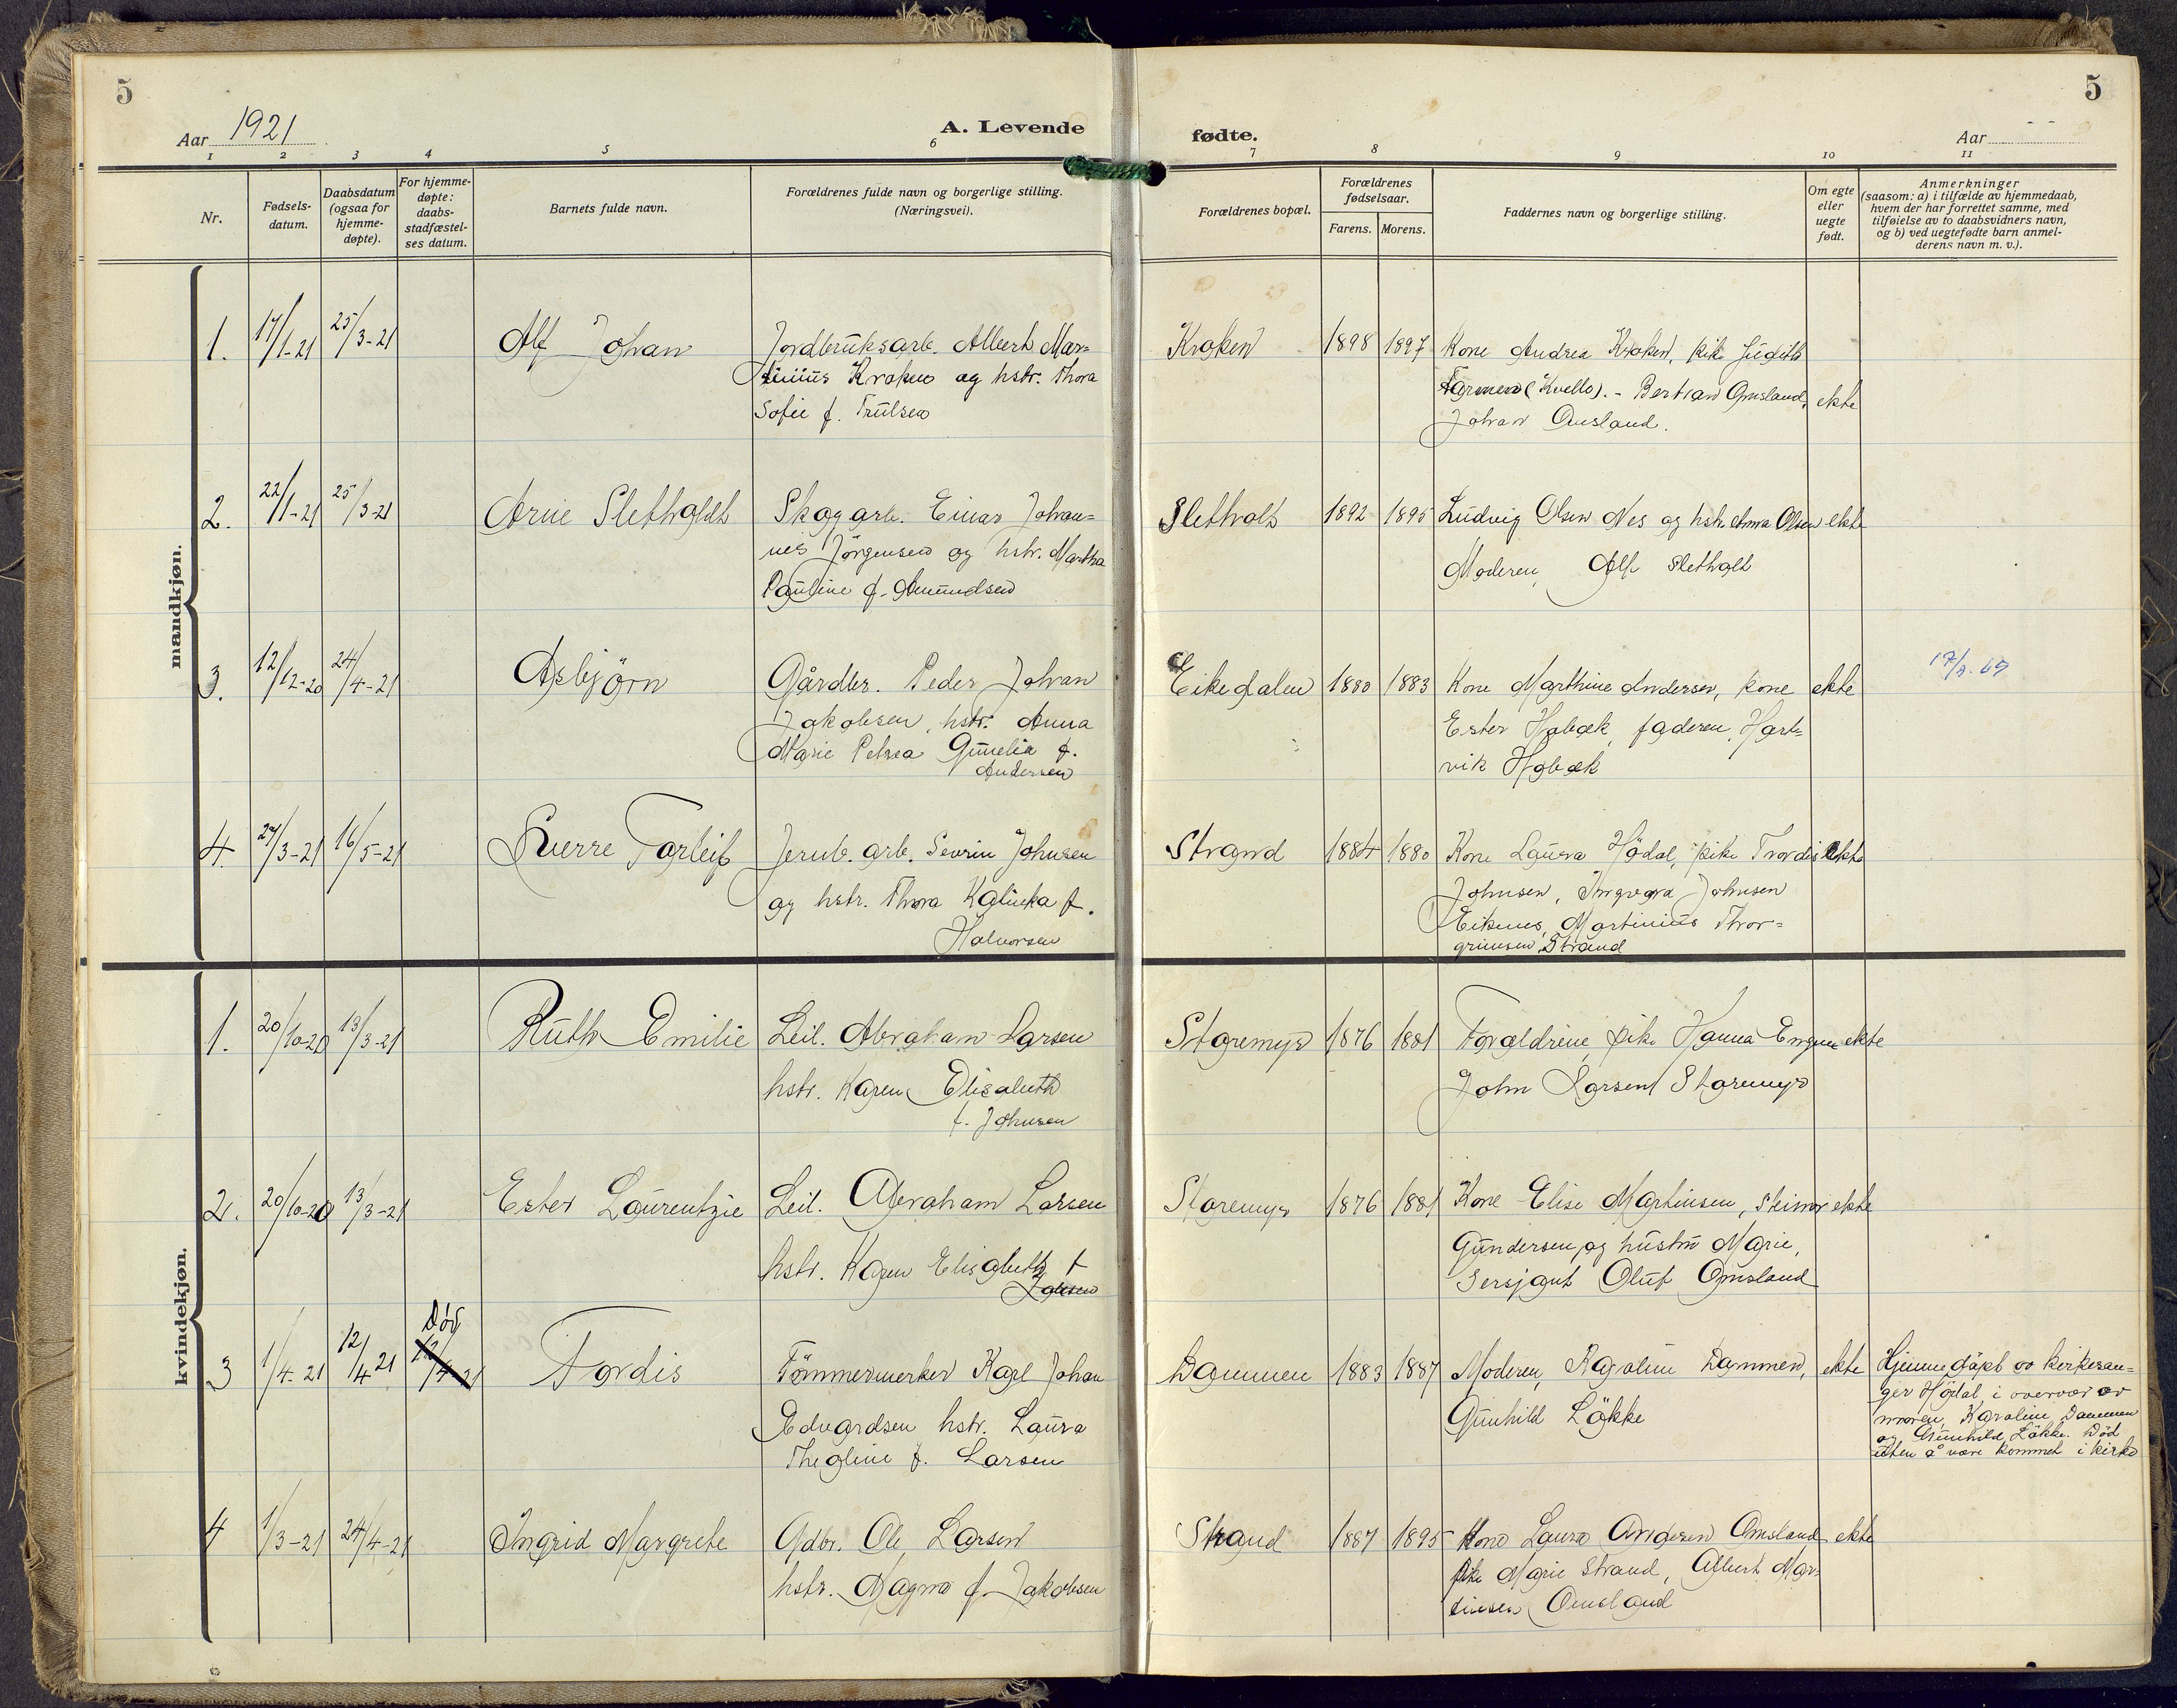 5
Aar 1921
A. Levende
fødte.
Aar
5
1 2 3 4 5 6 7 8 9 10 11
Nr.
Fødsels-
datum.
Daabsdatum
(ogsaa for
hjemme-
døpte).
For hjemme-
døpte:
daabs-
stadfæstel-
ses datum.
Barnets fulde navn.
Forældrenes fulde navn og borgerlige stilling.
(Næringsvei).
Forældrenes bopæl.
Forældrenes
fødselsaar.
Farens. Morens.
Faddernes navn og borgerlige stilling.
Om egte
eller
uegte
født.
Anmerkninger
(saasom: a) i tilfælde av hjemmedaab,
hvem der har forrettet samme, med
tilføielse av to daabsvidners navn,
og b) ved uegtefødte barn anmel-
derens navn m. v.).
mandkjøn.
1. 17/1-21 25/3-21 Alf Johan
Jordbruksarb. Albert Mar-
tinius Kroken og hstr. Thora
Sofie f. Trulsen
Kroken 1898 1897
Kone Andrea Kroken, pike Judith
(Kvello). - Bertian Omsland,
Johan Omsland.
ekte
2. 22/1-21 25/3-21 Arne Sletholdt
Skogarb. Einar Johan-
nes Jörgensen og hstr. Martha
Pauline f. Amundsen
Sletholt 1892 1895
Ludvig Olsen Nes og hstr. Anna Olsen
Moderen, Alf Sletholt
ekte
3. 12/12-20 24/4-21 Asbjörn
Gårdbr. Peder Johan
Jakobsen, hstr. Anna
Marie Petrea Gunelia f.
Andersen
Eikedalen 1880 1883
Kone Marthine Andersen, kone
Ester Habæk, faderen, Hart-
vik Habæk
ekte
4. 27/3-21 16/5-21 Sverre Torleif
Jernb. arb. Sevrin Johnsen
og hstr. Thora Kalinka f.
Halvorsen
Strand 1884 1880
Kone Laura Hödal, pike Tordis
Johnsen, Ingvara Johnsen
Eiknes, Martinius Thor-
grimsen Strand
ekte
kvindekjøn.
1. 20/10-20 13/3-21 Ruth Emilie
Leil. Abraham Larsen
hstr. Karen Elisabeth
f. Johnsen
Staremyr 1876 1881
Forældrene, pike Hanna
John Larsen Staremyr
ekte
2. 20/10-20 13/3-21 Ester Laurentzie
Leil. Abraham Larsen
hstr. Karen Elisabeth f
Staremyr 1876 1881
Kone Elise Martinsen, Steinar
Gundersen og hustru Marie,
Sersjant Oluf Omsland
ekte
3 1/4-21 12/4 21 Död
12/4-21
Tordis
Tömmermerker Karl Johan
Edvardsen hstr. Laura
Theoline f. Larsen
Dammen 1883 1887
Moderen, Karoline Dammen,
Gunhild Lökke
ekte
Hjemmedöpt av kirkesan-
ger Hödal i overvær av
moren, Karoline Dammen
og Gunhild Lökke. Död
uten å være kommet i kirke
4 1/3-21 24/4-21 Ingrid Margrete
Gdbr. Ole Larsen
hstr. Magna f. Jakobsen
Strand 1887 1895
Kone Laura Andersen Omsland
pike Marie Strand, Albert Mar-
tinsen Omsland
ekte